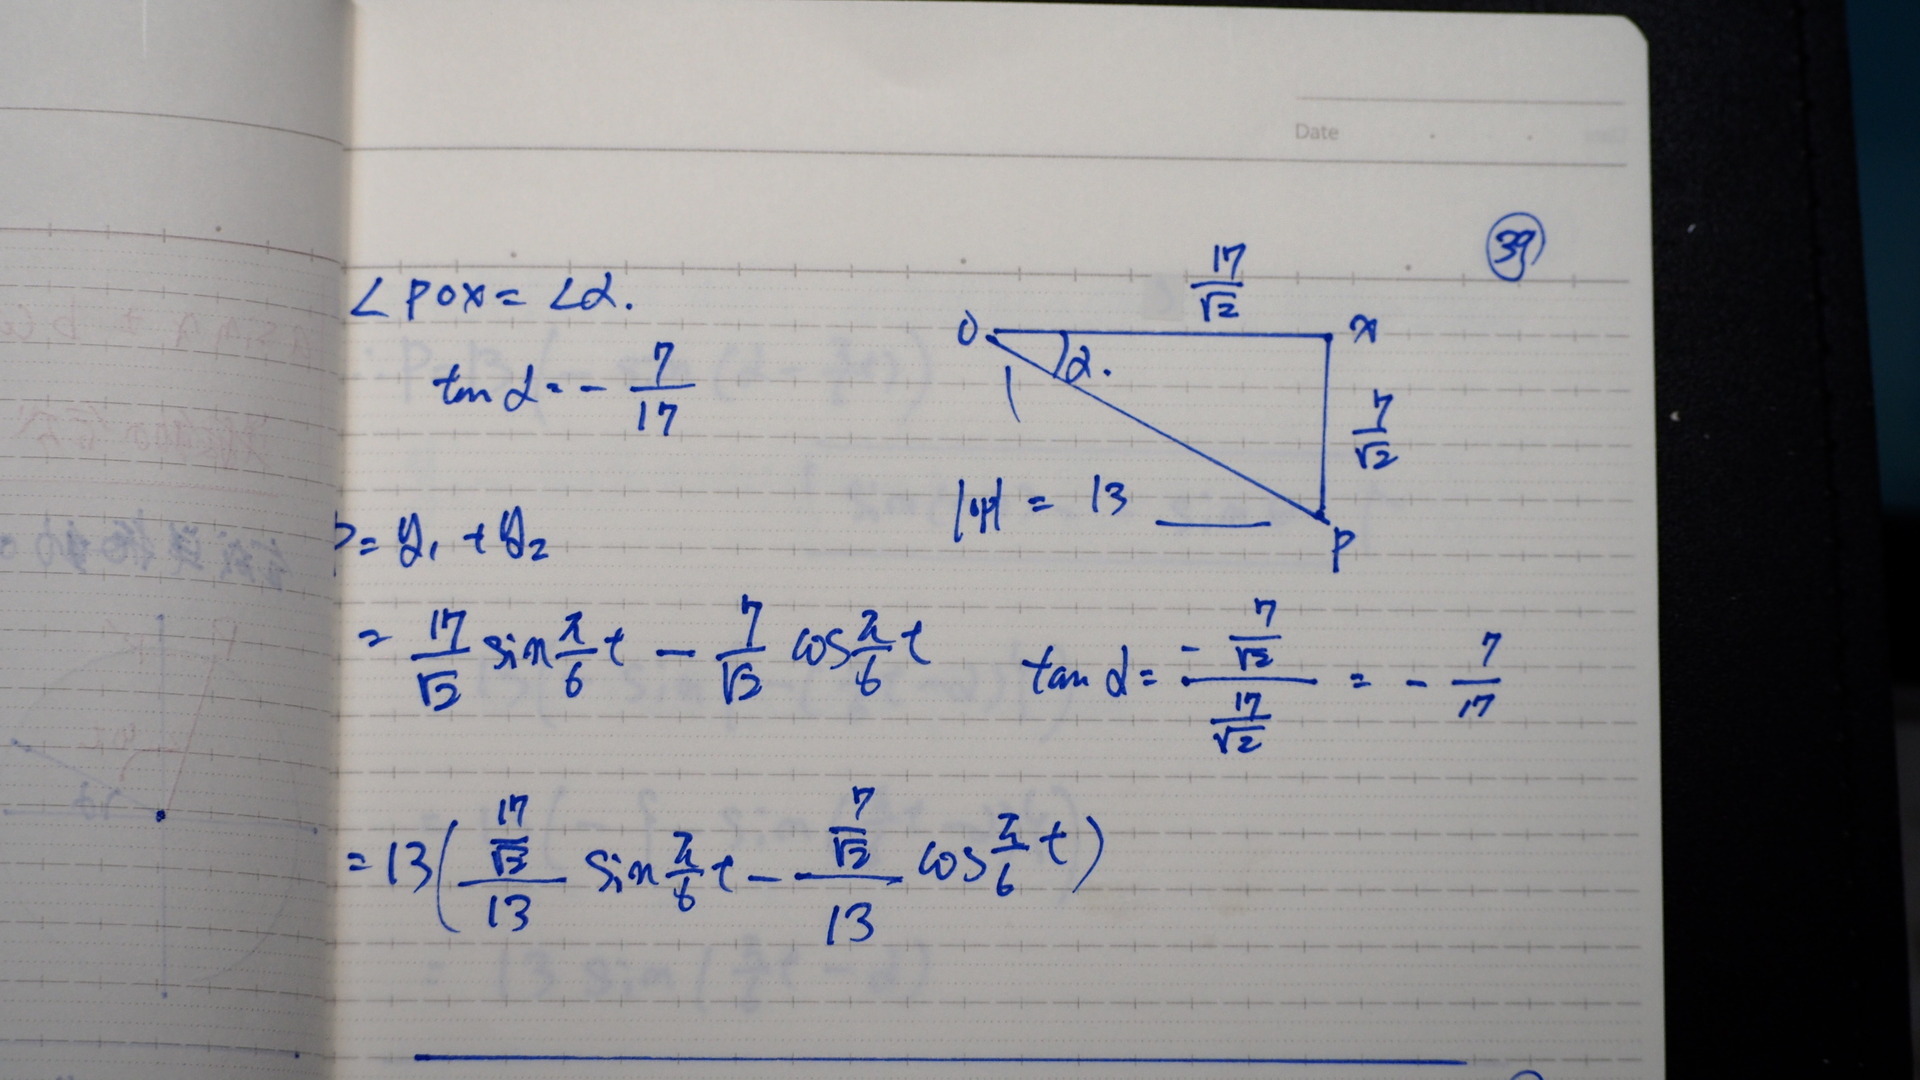 Date
39
∠POX = ∠α.
tan α = - 7/17
17/√2
O
x
α.
7/√2
|OP| = 13
P
P = y₁ + y₂
= 17/√2 sin π/6 t - 7/√2 cos π/6 t
tan α = (- 7/√2)/(17/√2) = - 7/17
= 13 ( (17/√2)/13 sin π/6 t - (7/√2)/13 cos π/6 t )